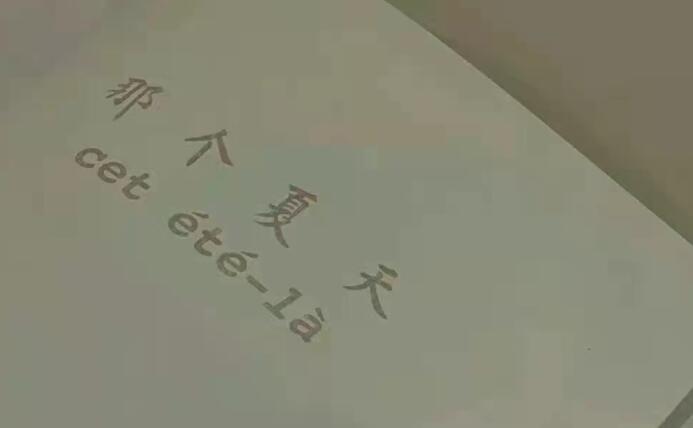 那个夏天
cet été-là